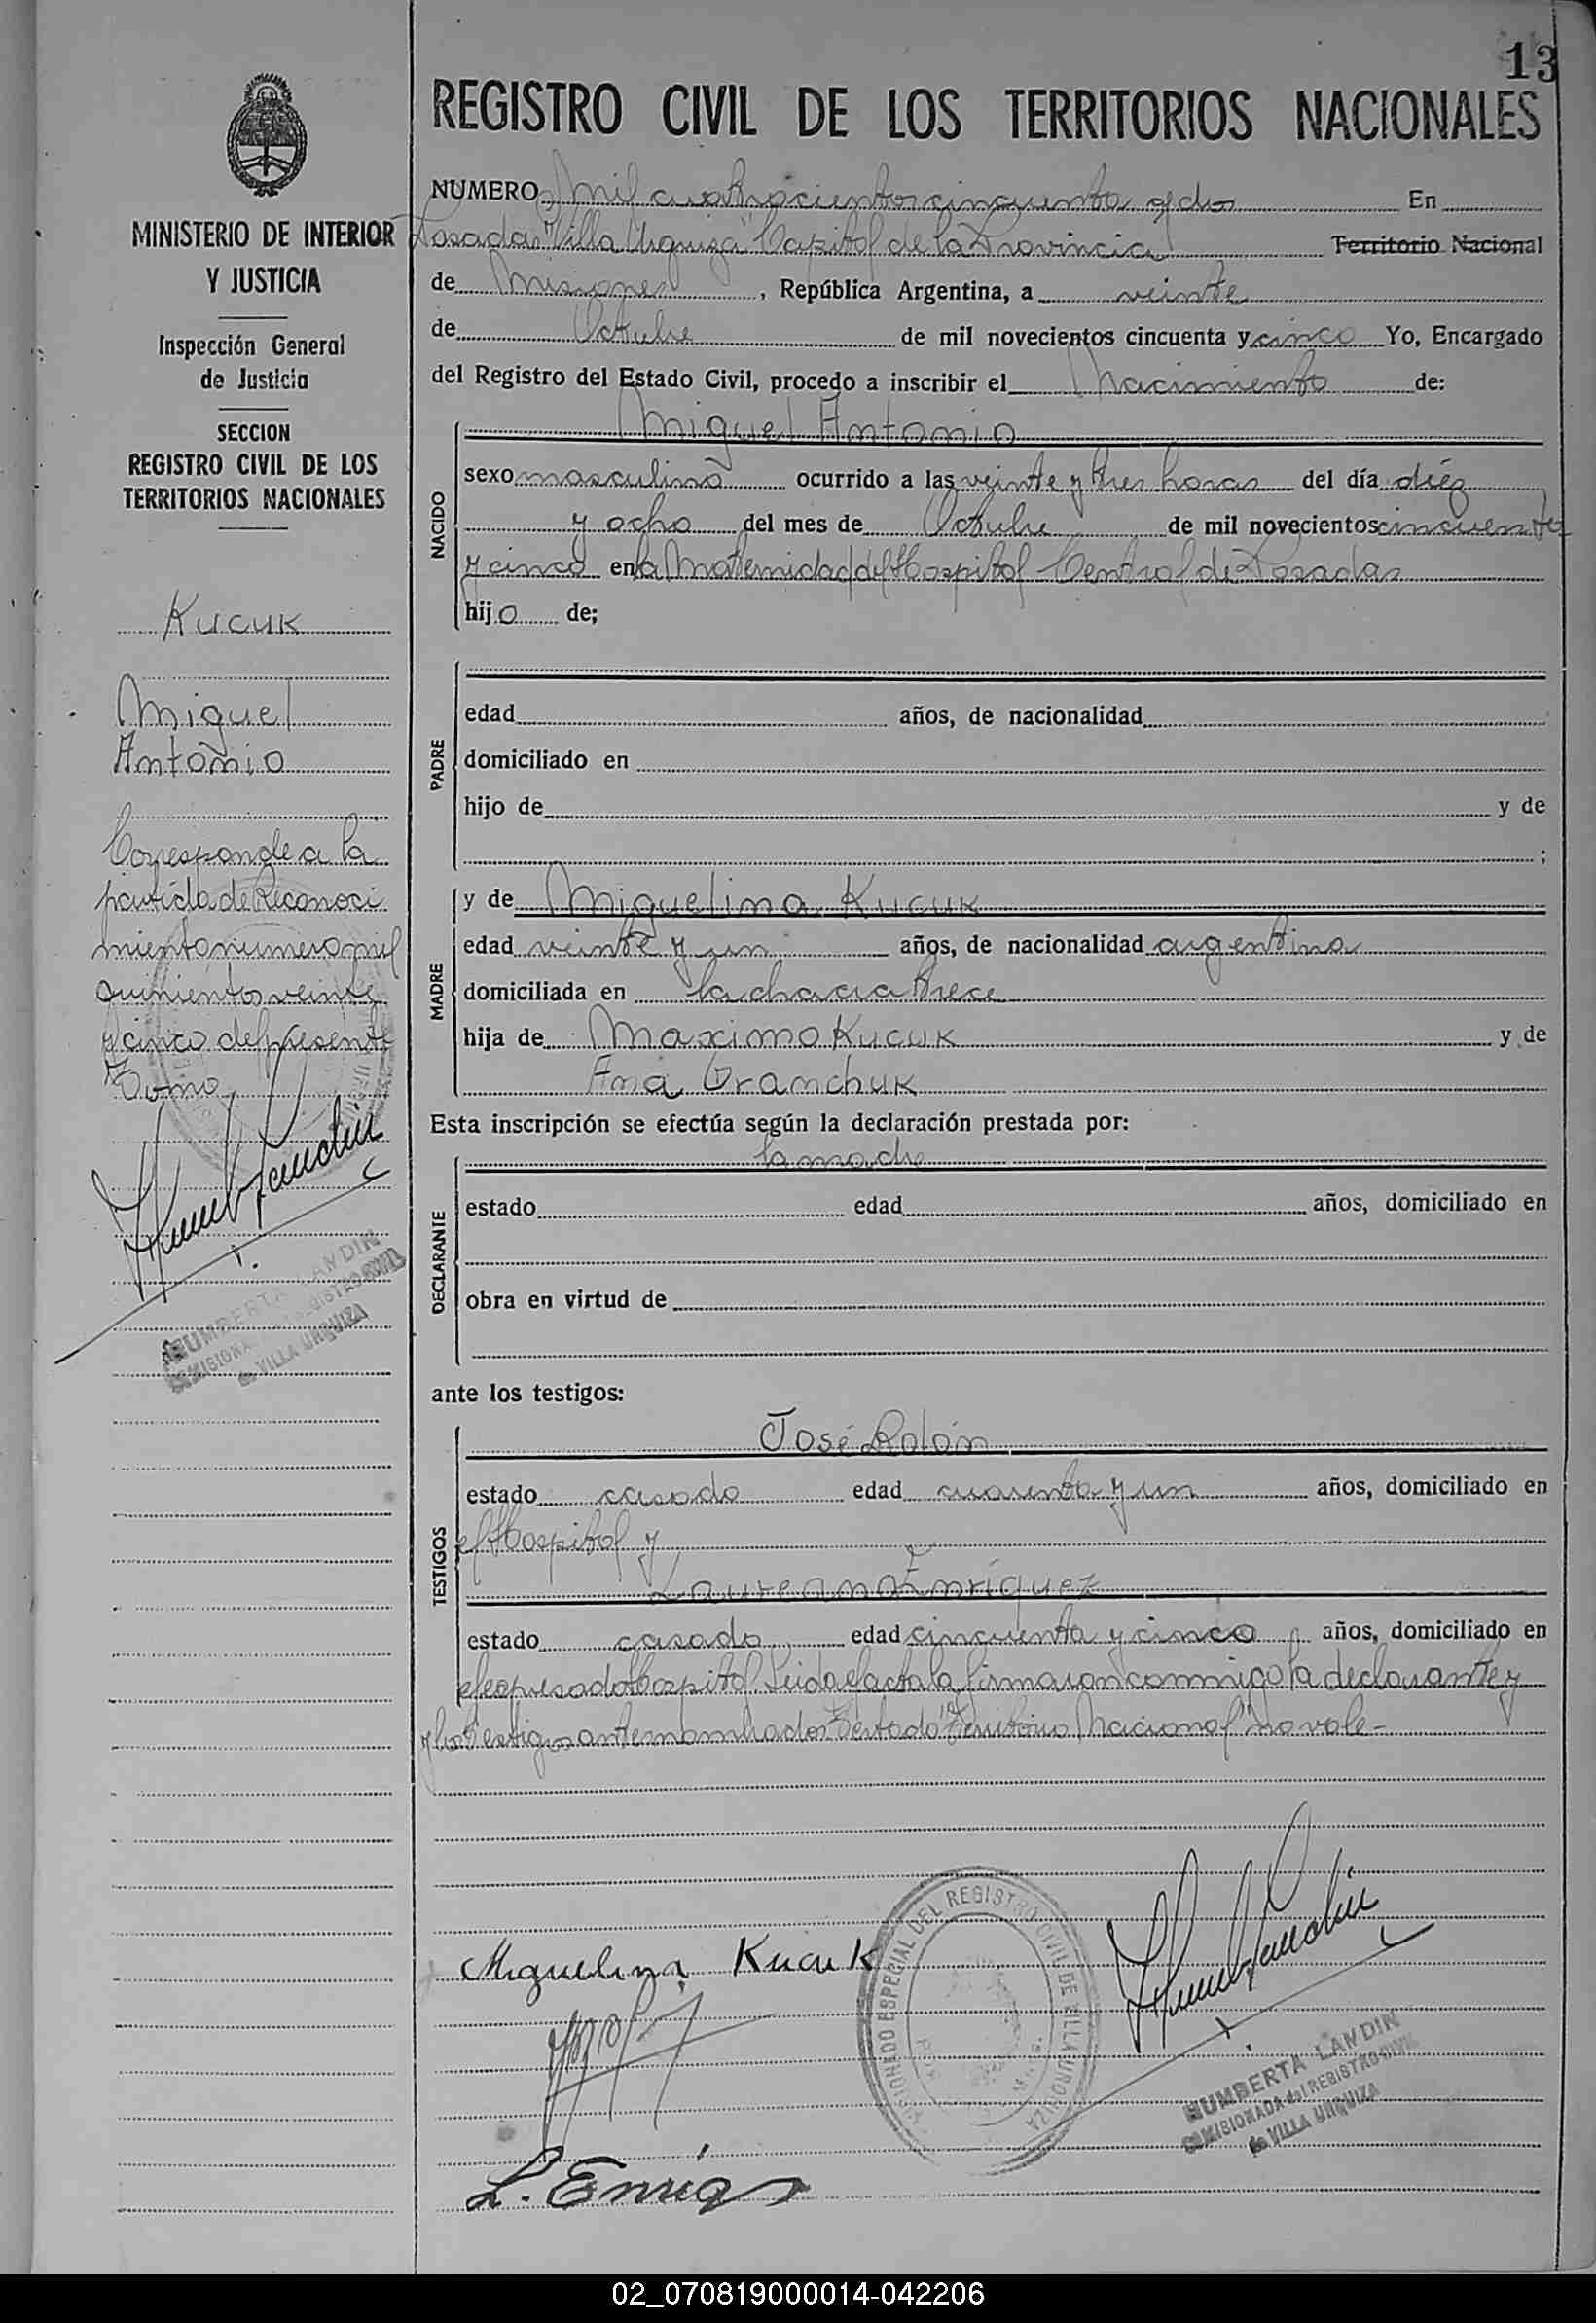 13
REGISTRO CIVIL DE LOS TERRITORIOS NACIONALES
MINISTERIO DE INTERIOR
Y JUSTICIA
Inspección General
de Justicia
SECCION
REGISTRO CIVIL DE LOS
TERRITORIOS NACIONALES
Kucuk
Miguel
Antonio
Corresponde a la
partida de Reconoci
miento numero mil
quinientos veinte
y cinco del presente
Tomo
HUMBERTA LANDIN
COMISIONADA del REGISTRO CIVIL
de VILLA URQUIZA
NUMERO Mil cuatrocientos cincuenta y dos En
Posadas "Villa Urquiza" Capital de la Provincia Territorio Nacional
de Misiones, República Argentina, a veinte
de Octubre de mil novecientos cincuenta y cinco Yo, Encargado
del Registro del Estado Civil, procedo a inscribir el Nacimiento de:
NACIDO
Miguel Antonio
sexo masculino ocurrido a las veinte y tres horas del día diéz
y ocho del mes de Octubre de mil novecientos cincuenta
y cinco en la Maternidad del Hospital Central de Posadas
hijo de;
PADRE
edad años, de nacionalidad
domiciliado en
hijo de y de
;
MADRE
y de Miguelina Kucuk
edad veinte y un años, de nacionalidad argentina
domiciliada en la chacra trece
hija de Maximo Kucuk y de
Ana Gramchuk
Esta inscripción se efectúa según la declaración prestada por:
DECLARANTE
la madre
estado edad años, domiciliado en
obra en virtud de
ante los testigos:
TESTIGOS
José Rolón
estado casado edad cuarenta y un años, domiciliado en
el Hospital y
Laureano Enríquez
estado casado edad cincuenta y cinco años, domiciliado en
el expresado Hospital. Leida el acta la firmaron conmigo la declarante y
y los testigos antenombrados Testado "Territorio Nacional" no vale-
Miguelina Kucuk
L. Enriq
COMISIONADO ESPECIAL DEL REGISTRO CIVIL DE VILLA URQUIZA
HUMBERTA LANDIN
COMISIONADA del REGISTRO CIVIL
de VILLA URQUIZA
02_070819000014-042206